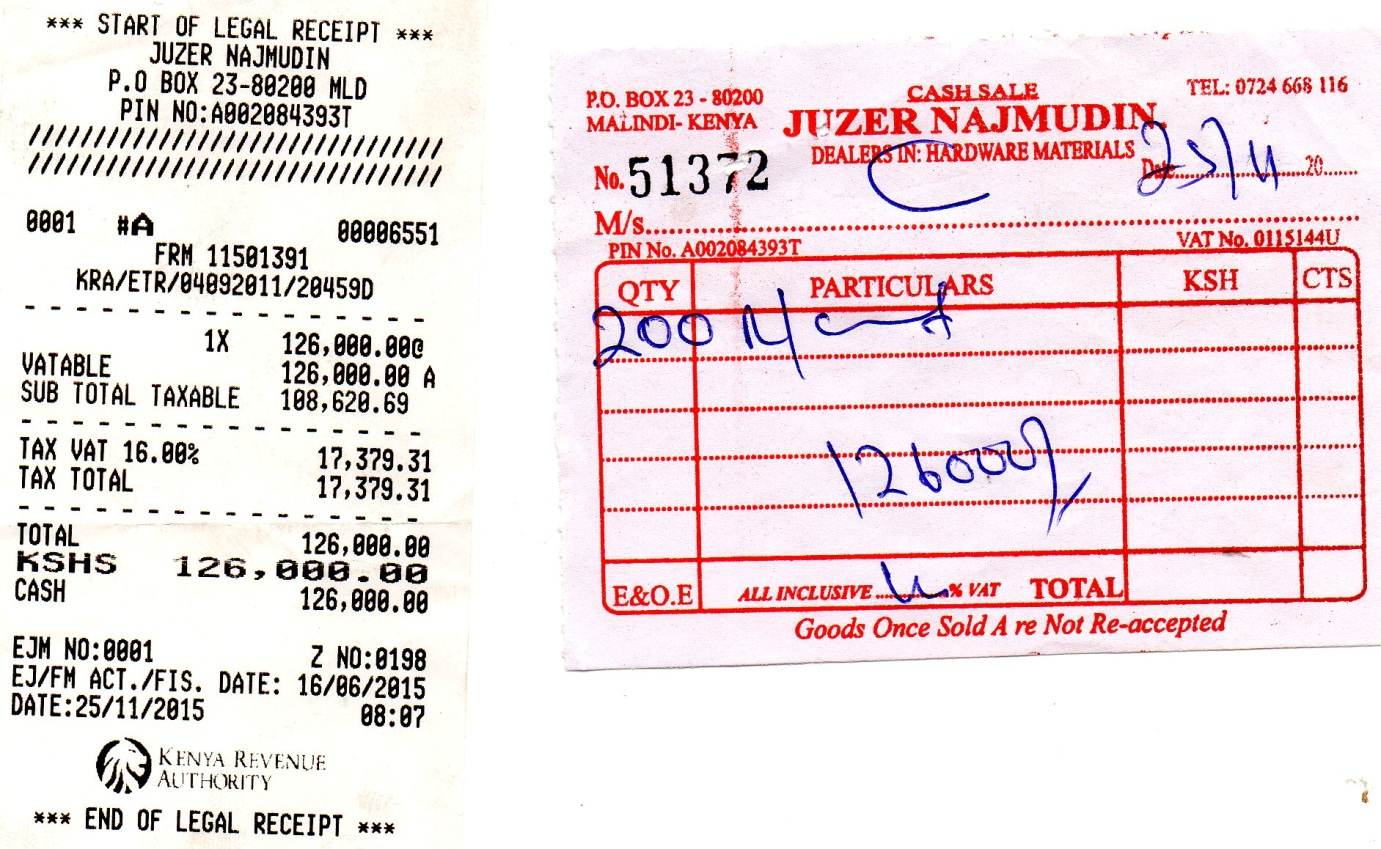 *** START OF LEGAL RECEIPT ***
JUZER NAJMUDIN
P.O BOX 23-80200 MLD
PIN NO:A002084393T
////////////////////////////////
////////////////////////////////
0001 #A 00006551
FRM 11501391
KRA/ETR/04092011/20459D
1X 126,000.00@
VATABLE 126,000.00 A
SUB TOTAL TAXABLE 108,620.69
TAX VAT 16.00% 17,379.31
TAX TOTAL 17,379.31
TOTAL 126,000.00
KSHS 126,000.00
CASH 126,000.00
EJM NO:0001 Z NO:0198
EJ/FM ACT./FIS. DATE: 16/06/2015
DATE:25/11/2015 08:07
KENYA REVENUE
AUTHORITY
*** END OF LEGAL RECEIPT ***
P.O. BOX 23 - 80200
MALINDI- KENYA
CASH SALE
TEL: 0724 668 116
JUZER NAJMUDIN
DEALERS IN: HARDWARE MATERIALS
No. 51372
Date 25/11 20
M/s
PIN No. A002084393T VAT No. 0115144U
QTY PARTICULARS KSH CTS
200
126000/
E&O.E ALL INCLUSIVE % VAT TOTAL
Goods Once Sold A re Not Re-accepted